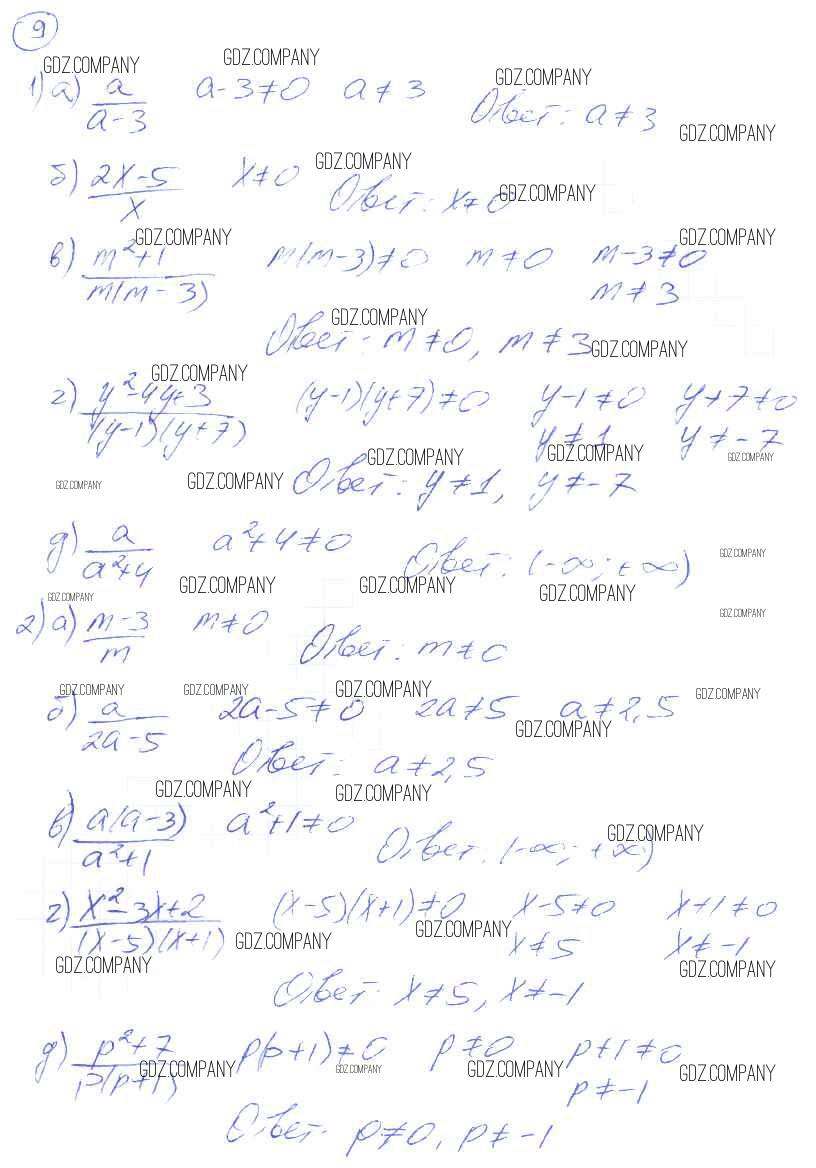 9
GDZ.COMPANY GDZ.COMPANY GDZ.COMPANY
1) а) a/(a-3) a-3≠0 a≠3 Ответ: a≠3
GDZ.COMPANY
GDZ.COMPANY
б) (2x-5)/x x≠0 Ответ: x≠0
GDZ.COMPANY
GDZ.COMPANY GDZ.COMPANY
в) (m²+1)/(m(m-3)) m(m-3)≠0 m≠0 m-3≠0
m≠3
GDZ.COMPANY
Ответ: m≠0, m≠3
GDZ.COMPANY
GDZ.COMPANY
г) (y²-4y+3)/((y-1)(y+7)) (y-1)(y+7)≠0 y-1≠0 y+7≠0
y≠1 y≠-7
GDZ.COMPANY GDZ.COMPANY GDZ.COMPANY
GDZ.COMPANY GDZ.COMPANY
Ответ: y≠1, y≠-7
д) a/(a²+4) a²+4≠0 Ответ: (-∞; +∞)
GDZ.COMPANY
GDZ.COMPANY GDZ.COMPANY GDZ.COMPANY
GDZ.COMPANY GDZ.COMPANY
2) а) (m-3)/m m≠0 Ответ: m≠0
GDZ.COMPANY GDZ.COMPANY GDZ.COMPANY GDZ.COMPANY
б) a/(2a-5) 2a-5≠0 2a≠5 a≠2,5
GDZ.COMPANY
Ответ: a≠2,5
GDZ.COMPANY GDZ.COMPANY
в) a(a-3)/(a²+1) a²+1≠0 Ответ: (-∞; +∞)
GDZ.COMPANY
г) (x²-3x+2)/((x-5)(x+1)) (x-5)(x+1)≠0 x-5≠0 x+1≠0
x≠5 x≠-1
GDZ.COMPANY GDZ.COMPANY
GDZ.COMPANY GDZ.COMPANY
Ответ: x≠5, x≠-1
д) (p²+7)/(p(p+1)) p(p+1)≠0 p≠0 p+1≠0
p≠-1
GDZ.COMPANY GDZ.COMPANY GDZ.COMPANY GDZ.COMPANY
Ответ: p≠0, p≠-1